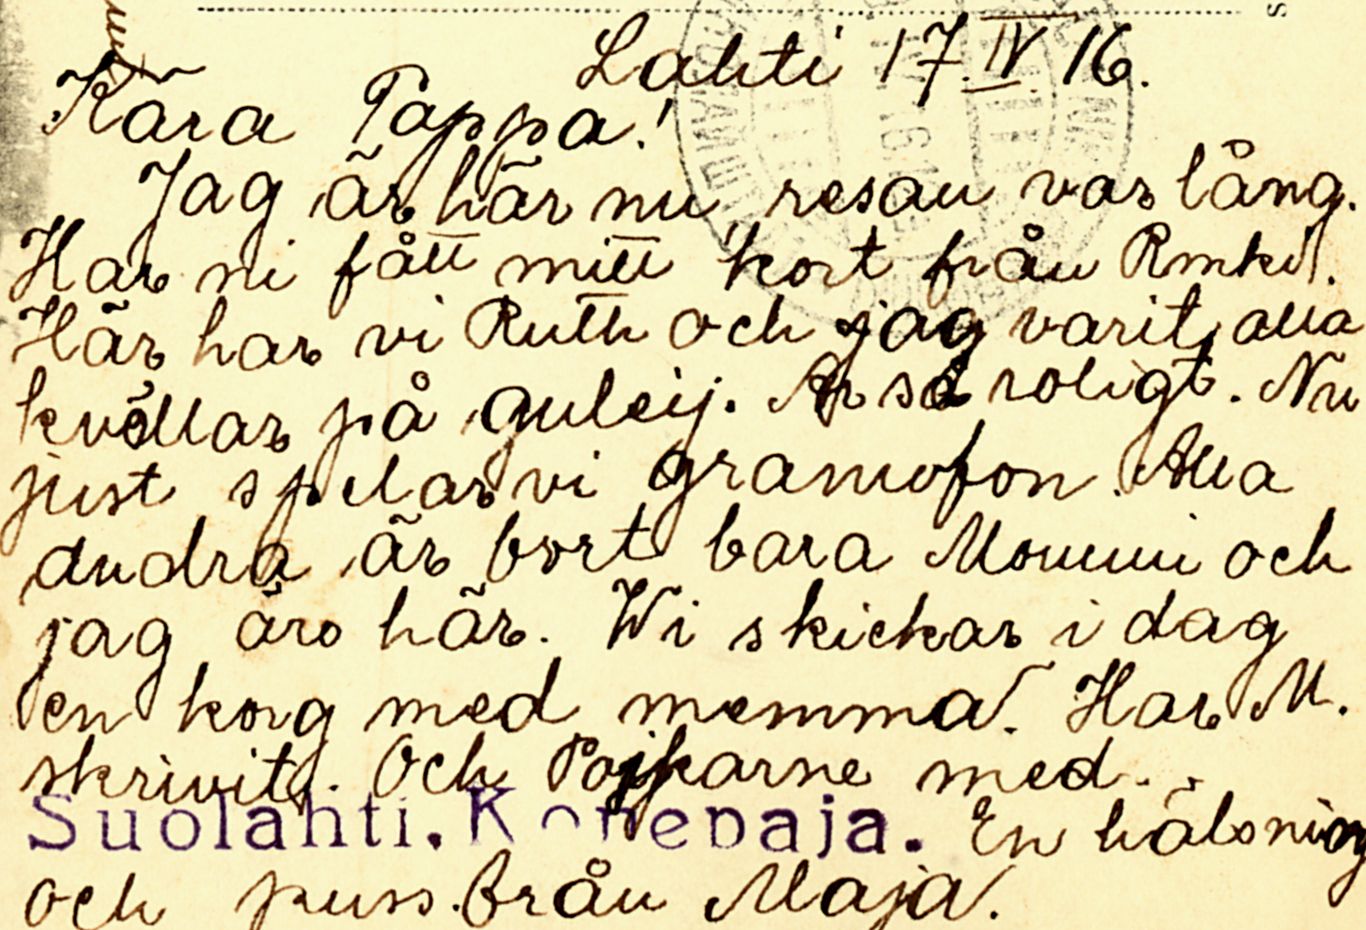 Lahti 17.IV.16.
Kära Pappa!
Jag är här nu, resan var lång.
Har ni fått mitt kort från Rmki.
Här har vi Ruth och jag varit alla
kvällar på guleij. Är så roligt. Nu
just spelar vi gramofon. Alla
andra är bort bara Mommi och
jag äro här. Wi skickar i dag
en korg med memma. Har M.
skrivit. Och Pojkarne med.
Suolahti. Konepaja. En hälsning
och puss från Maja.